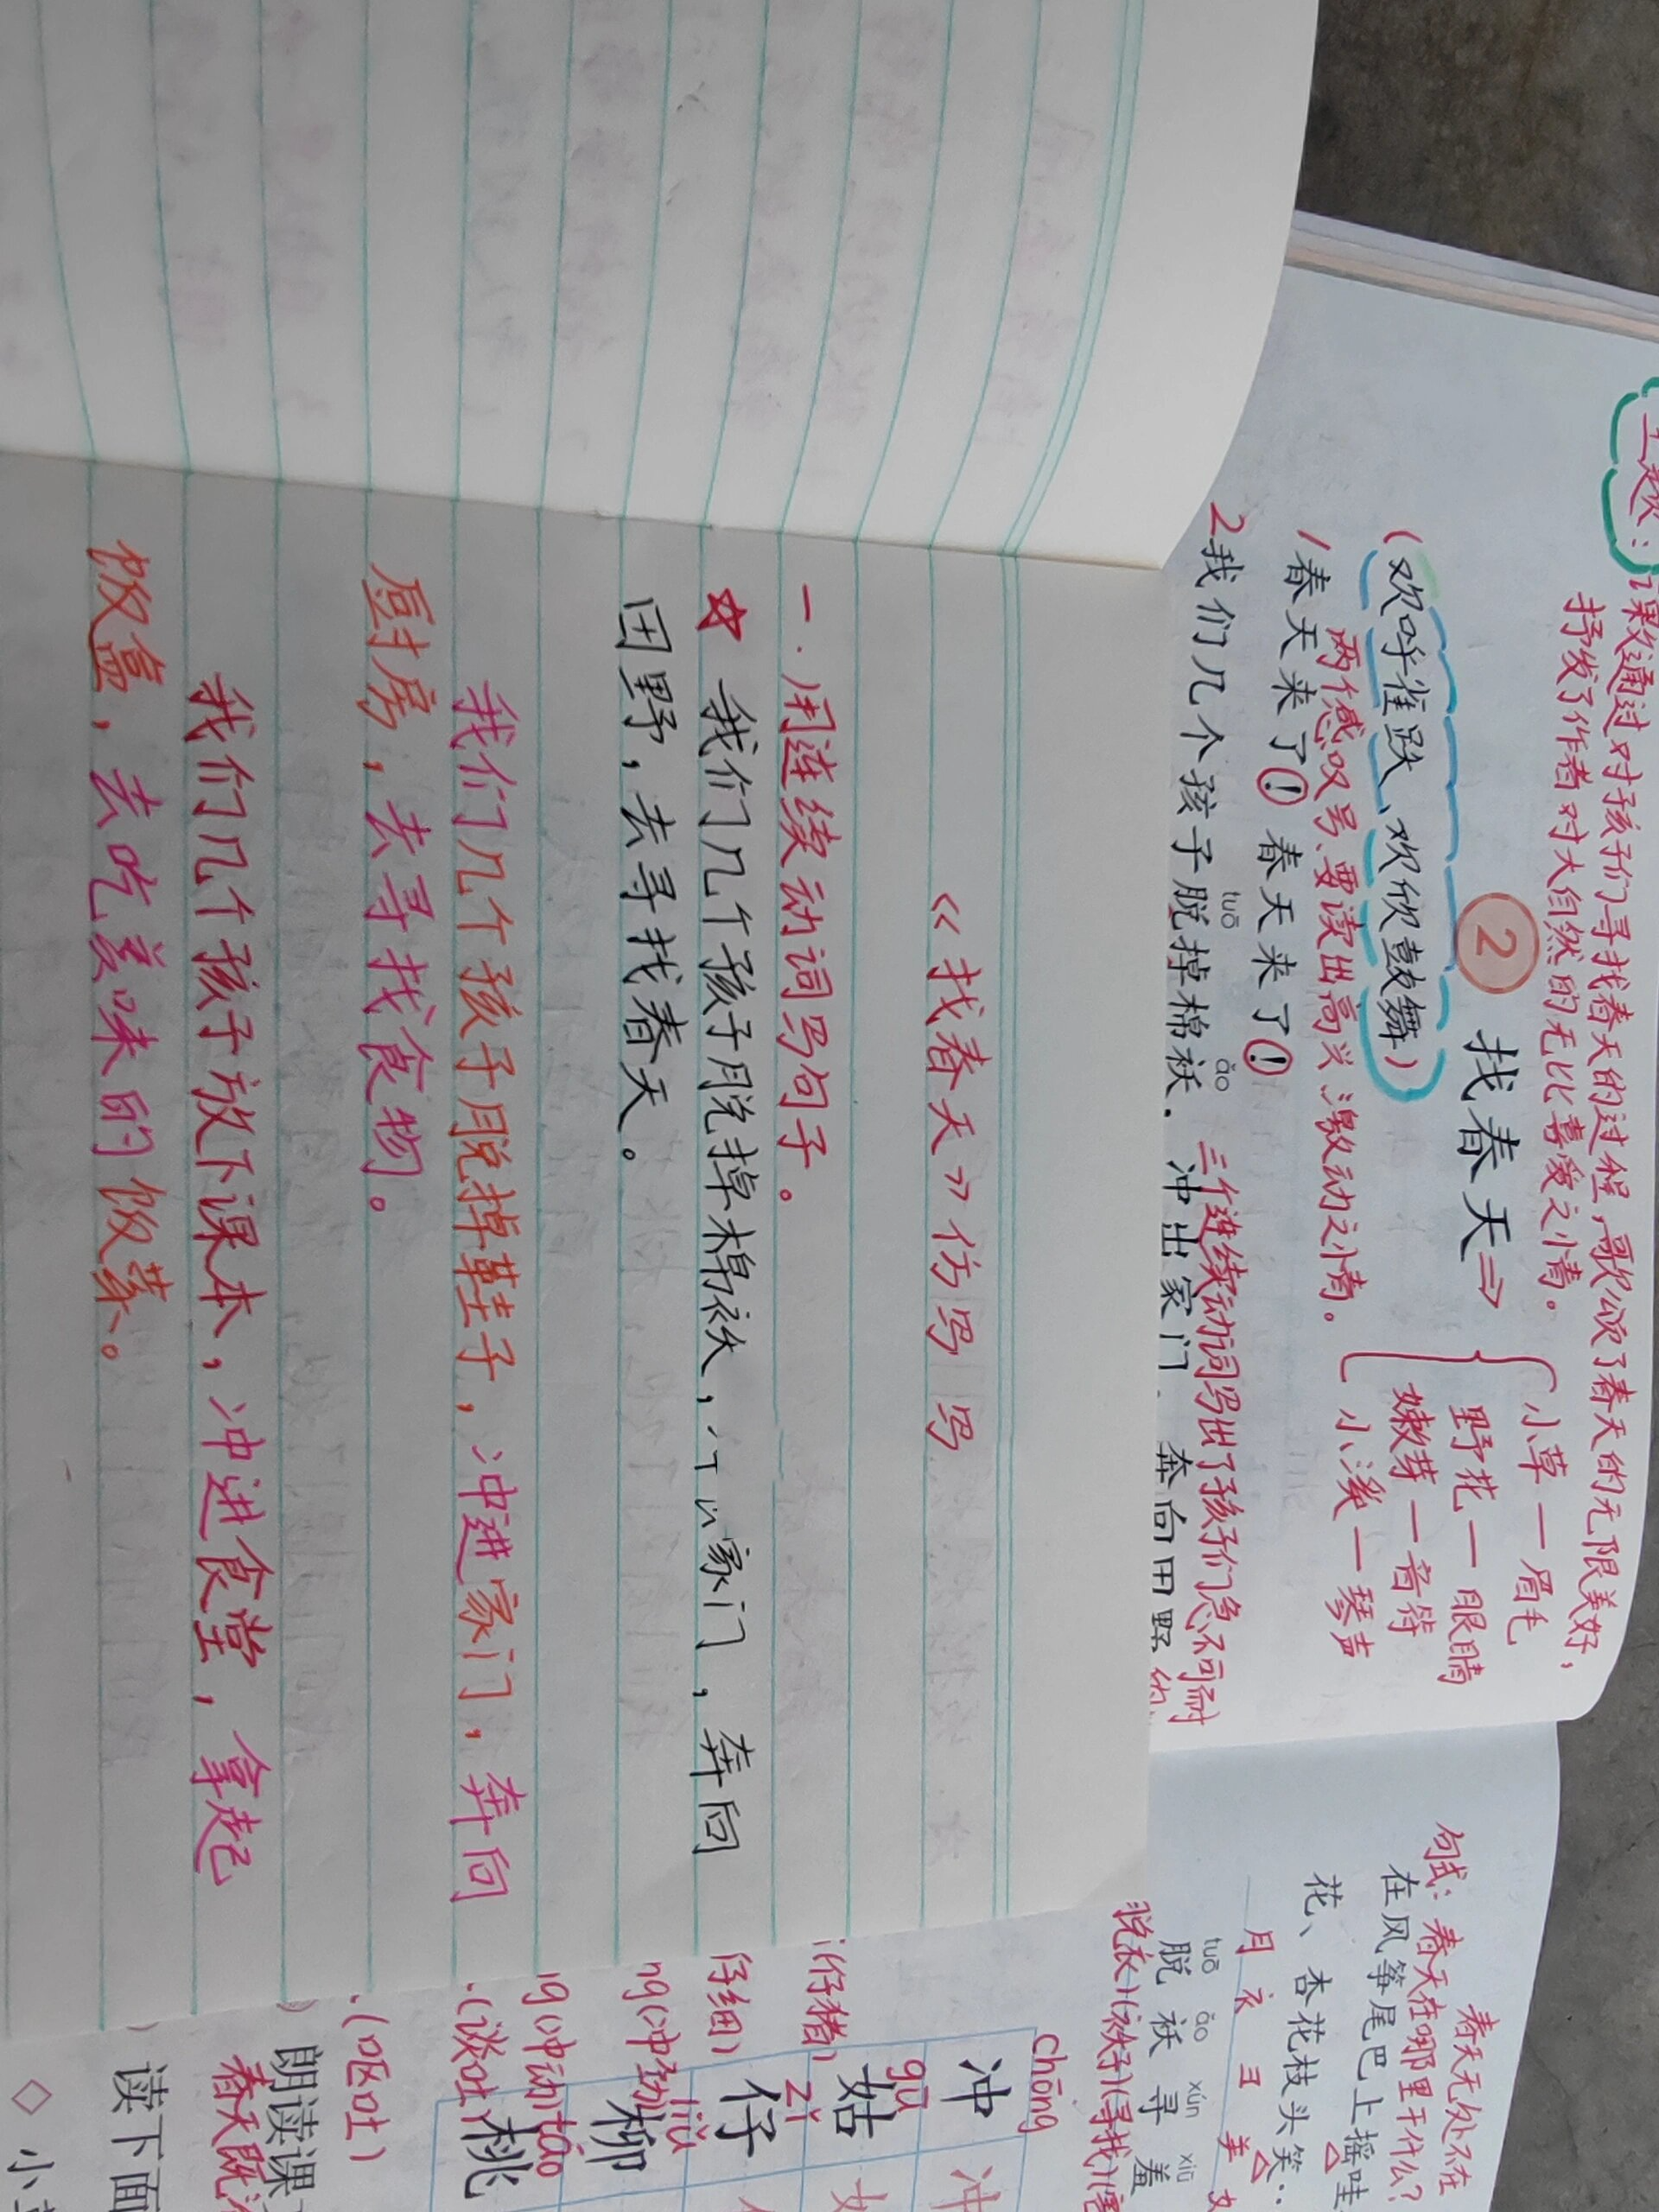 《找春天》仿写
一.用连续动词写句子。
☆ 我们几个孩子脱掉棉袄,家门,奔向
田野,去寻找春天。
我们几个孩子脱掉鞋子,冲进家门,奔向
厨房,去寻找食物。
我们几个孩子放下课本,冲进食堂,拿起
饭盒,去吃美味的饭菜。
课文通过对孩子们寻找春天的过程,歌颂了春天的无限美好,
抒发了作者对大自然的无比喜爱之情。
② 找春天⇒
小草—眉毛
野花—眼睛
嫩芽—音符
小溪—琴声
(欢呼雀跃、欢欣鼓舞)
两个感叹号,要读出高兴、激动之情。
1春天来了!春天来了!
三个连续动词写出了孩子们急不可耐
tuō ǎo
2我们几个孩子脱掉棉袄,冲出家门,奔向田野
春天无处不在
句式:春天在哪里干什么?
在风筝尾巴上摇哇
花、杏花枝头笑
月 衤 彐 羊
tuō ǎo xún xiū
脱 袄 寻 羞
(脱衣)(袄子)(寻找)(害
chōng
冲 冲
gū
姑 女
(仔猪)
zǐ
仔
(仔细)
liǔ
柳
ng(冲劲
táo
桃
ng(冲动
(谈吐)
(呕吐)
朗读课
春天既
读下面
◇ 小